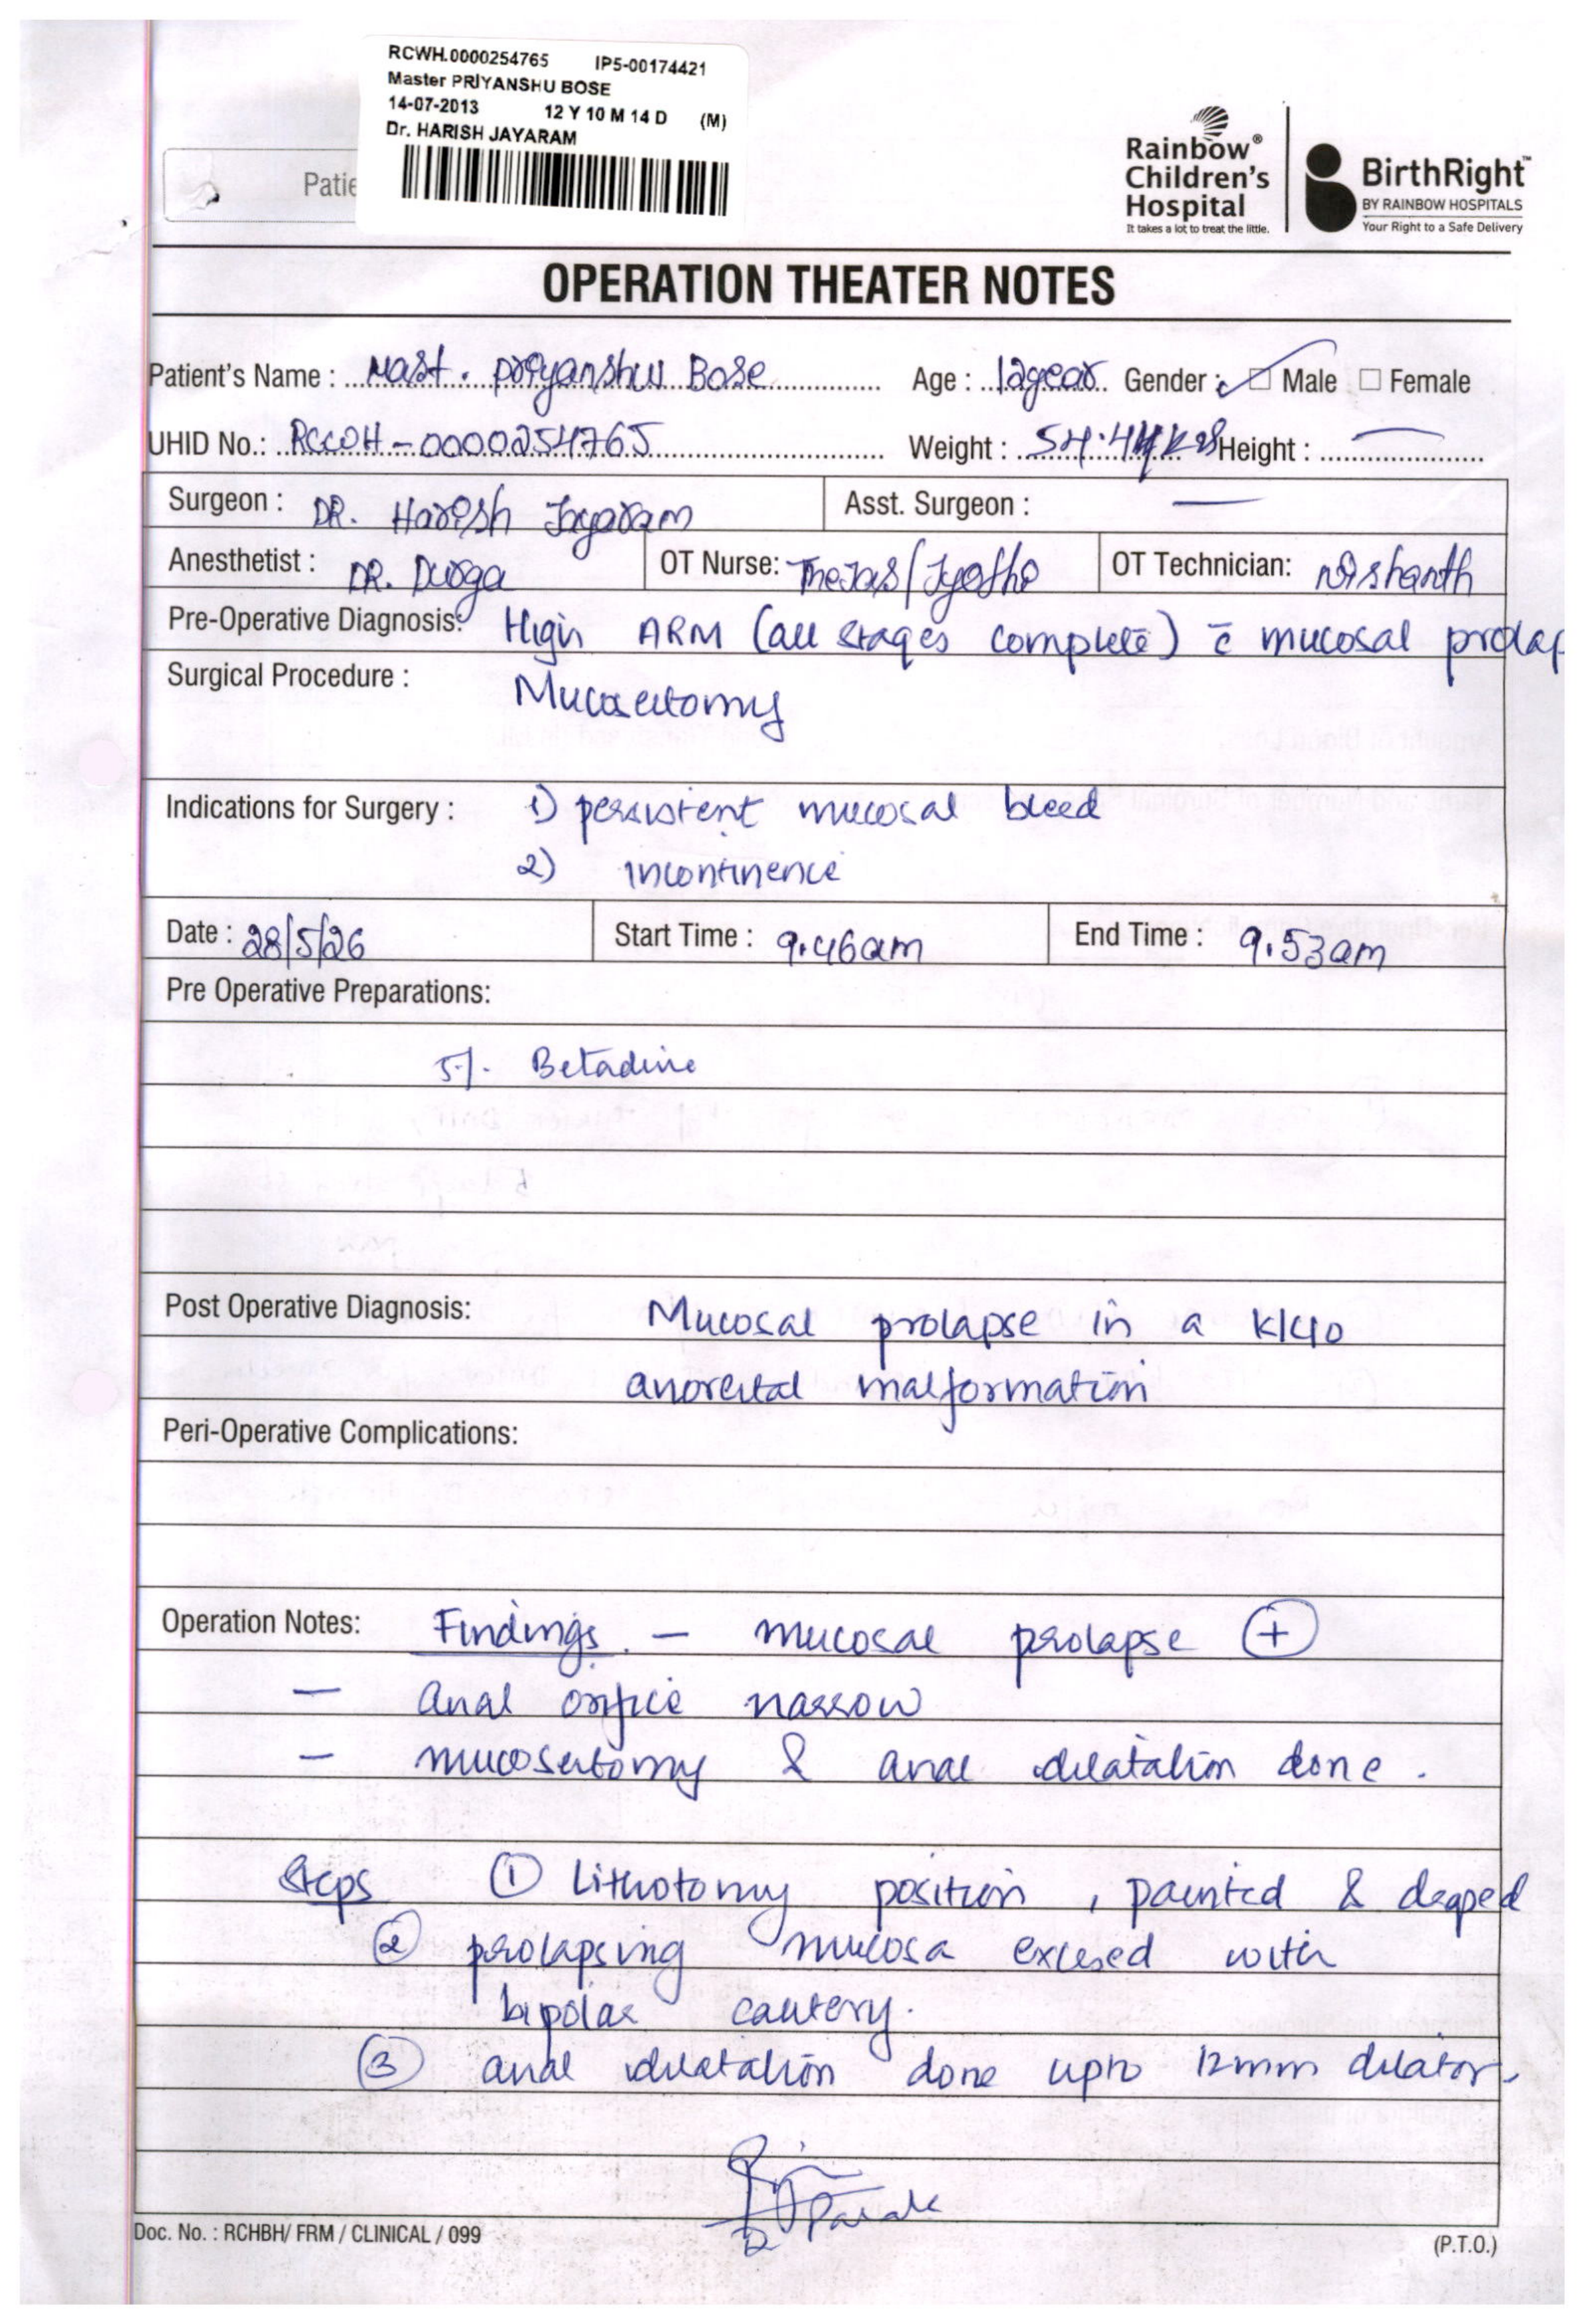 RCWH.0000254765 IP5-00174421
Master PRIYANSHU BOSE
14-07-2013 12 Y 10 M 14 D (M)
Dr. HARISH JAYARAM
Patie
Rainbow® Children's Hospital
It takes a lot to treat the little.
BirthRight™
BY RAINBOW HOSPITALS
Your Right to a Safe Delivery
OPERATION THEATER NOTES
Patient's Name : Mast. Priyanshu Bose Age : 12year Gender : ✓ ☐ Male ☐ Female
UHID No.: RCWH-0000254765 Weight : Height : —
Surgeon : DR. Harish Jayaram Asst. Surgeon : —
Anesthetist : DR. Durga OT Nurse: Thejas/Jyothi OT Technician: Nishanth
Pre-Operative Diagnosis: High ARM (all stages complete) c̄ mucosal prolap
Surgical Procedure : Mucosectomy
Indications for Surgery : 1) persistent mucosal bleed
2) incontinence
Date : 28/5/26 Start Time : 9.46am End Time : 9.53am
Pre Operative Preparations:
5% Betadine
Post Operative Diagnosis: Mucosal prolapse in a k/c/o
anorectal malformation
Peri-Operative Complications:
Operation Notes: Findings - mucosal prolapse ⊕
- anal orifice narrow
- mucosectomy & anal dilatation done.
Steps ① Lithotomy position, painted & draped
② prolapsing mucosa excised with
bipolar cautery.
③ anal dilatation done upto 12mm dilator.
Doc. No. : RCHBH/ FRM / CLINICAL / 099 (P.T.O.)